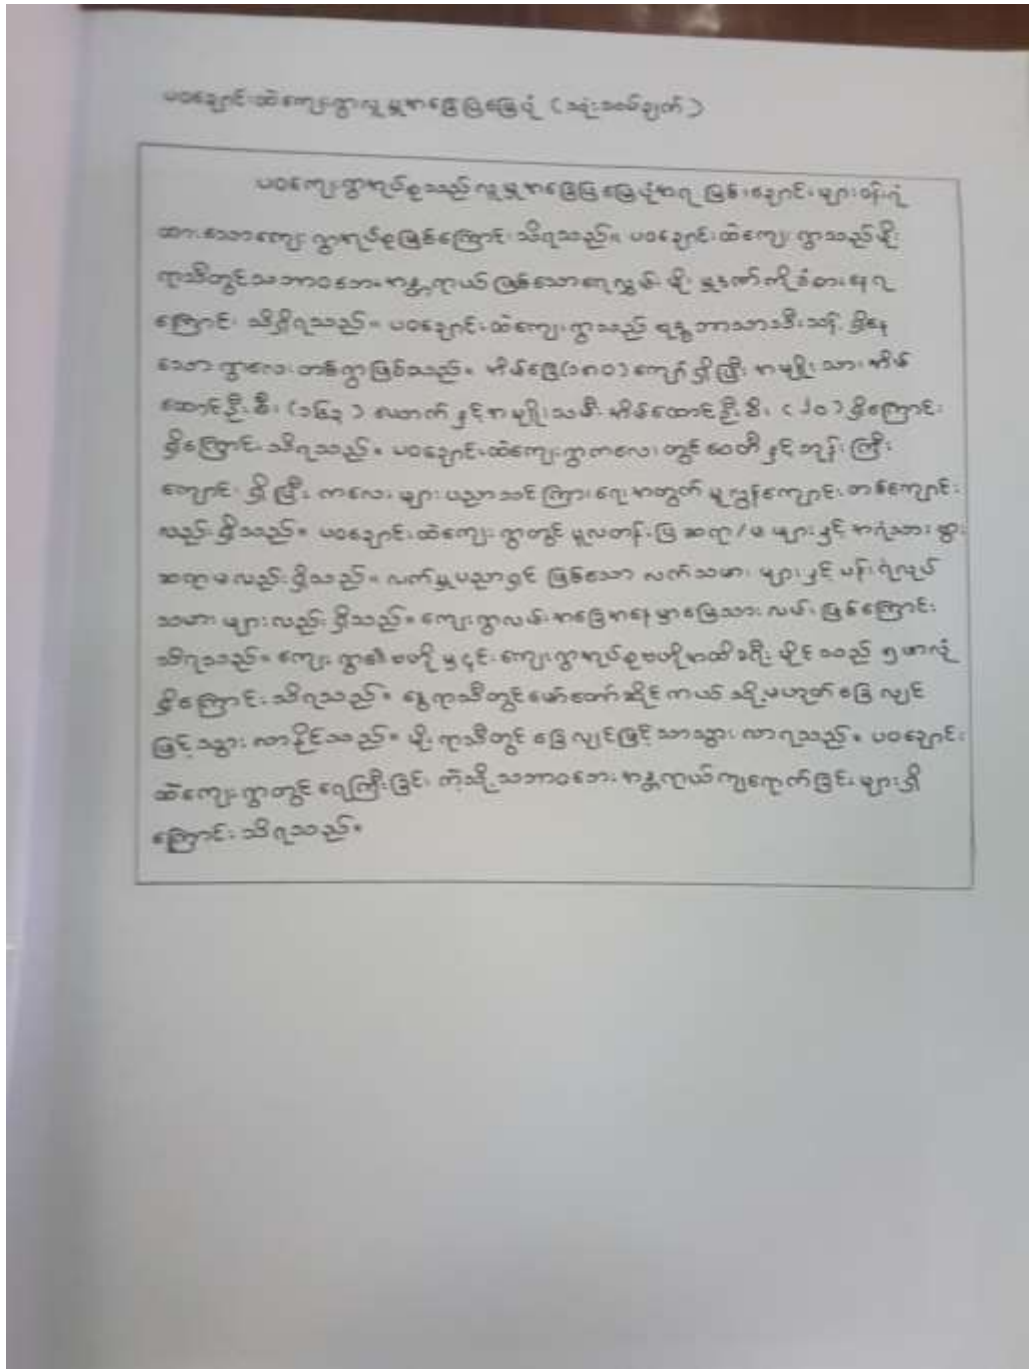 ပဝချောင်းထဲကျေးရွာလူမှုအခြေပြမြေပုံ (သုံးသပ်ချက်)
ပဝကျေးရွာအုပ်စုသည်လူမှုအခြေပြမြေပုံအရ မြစ်ချောင်းများဝန်းရံ
ထားသောကျေးရွာအုပ်စုဖြစ်ကြောင်းသိရသည်။ ပဝချောင်းထဲကျေးရွာသည်မိုး
ရာသီတွင်သဘာဝဘေးအန္တရာယ်ဖြစ်သောရေလွှမ်းမိုးမှုဒဏ်ကိုခံစားရ
ကြောင်း သိရှိရသည်။ ပဝချောင်းထဲကျေးရွာသည် ဗုဒ္ဓဘာသာသီးသန့်ရှိနေ
သောရွာလေးတစ်ရွာဖြစ်သည်။ အိမ်ခြေ(၁၈၀)ကျော်ရှိပြီး အမျိုးသားအိမ်
ထောင်ဦးစီး (၁၆၃) ယောက်နှင့်အမျိုးသမီးအိမ်ထောင်ဦးစီး (၂၀) ရှိကြောင်း
ရှိကြောင်းသိရသည်။ ပဝချောင်းထဲကျေးရွာကလေးတွင်စေတီနှင့်ဘုန်းကြီး
ကျောင်းရှိပြီး ကလေးများပညာသင်ကြားရေးအတွက် မူလွန်ကျောင်းတစ်ကျောင်း
လည်းရှိသည်။ ပဝချောင်းထဲကျေးရွာတွင် မူလတန်းပြဆရာ/မများနှင့်အရံသားဖွား
ဆရာမလည်းရှိသည်။ လက်မှုပညာရှင်ဖြစ်သော လက်သမားများနှင့်ပန်းရံလုပ်
သမားများလည်းရှိသည်။ ကျေးရွာလမ်းအခြေအနေမှာမြေသားလမ်းဖြစ်ကြောင်း
သိရသည်။ ကျေးရွာ၏ဗဟိုမှ၎င်းကျေးရွာအုပ်စုဗဟိုအထိခရီးမိုင်သည် ၅ဖာလုံ
ရှိကြောင်းသိရသည်။ နွေရာသီတွင်မော်တော်ဆိုင်ကယ် သို့မဟုတ်ခြေလျင်
ဖြင့်သွားလာနိုင်သည်။ မိုးရာသီတွင်ခြေလျင်ဖြင့်သာသွားလာရသည်။ ပဝချောင်း
ထဲကျေးရွာတွင်ရေကြီးခြင်းကဲ့သို့သဘာဝဘေးအန္တရာယ်ကျရောက်ခြင်းများရှိ
ကြောင်းသိရသည်။